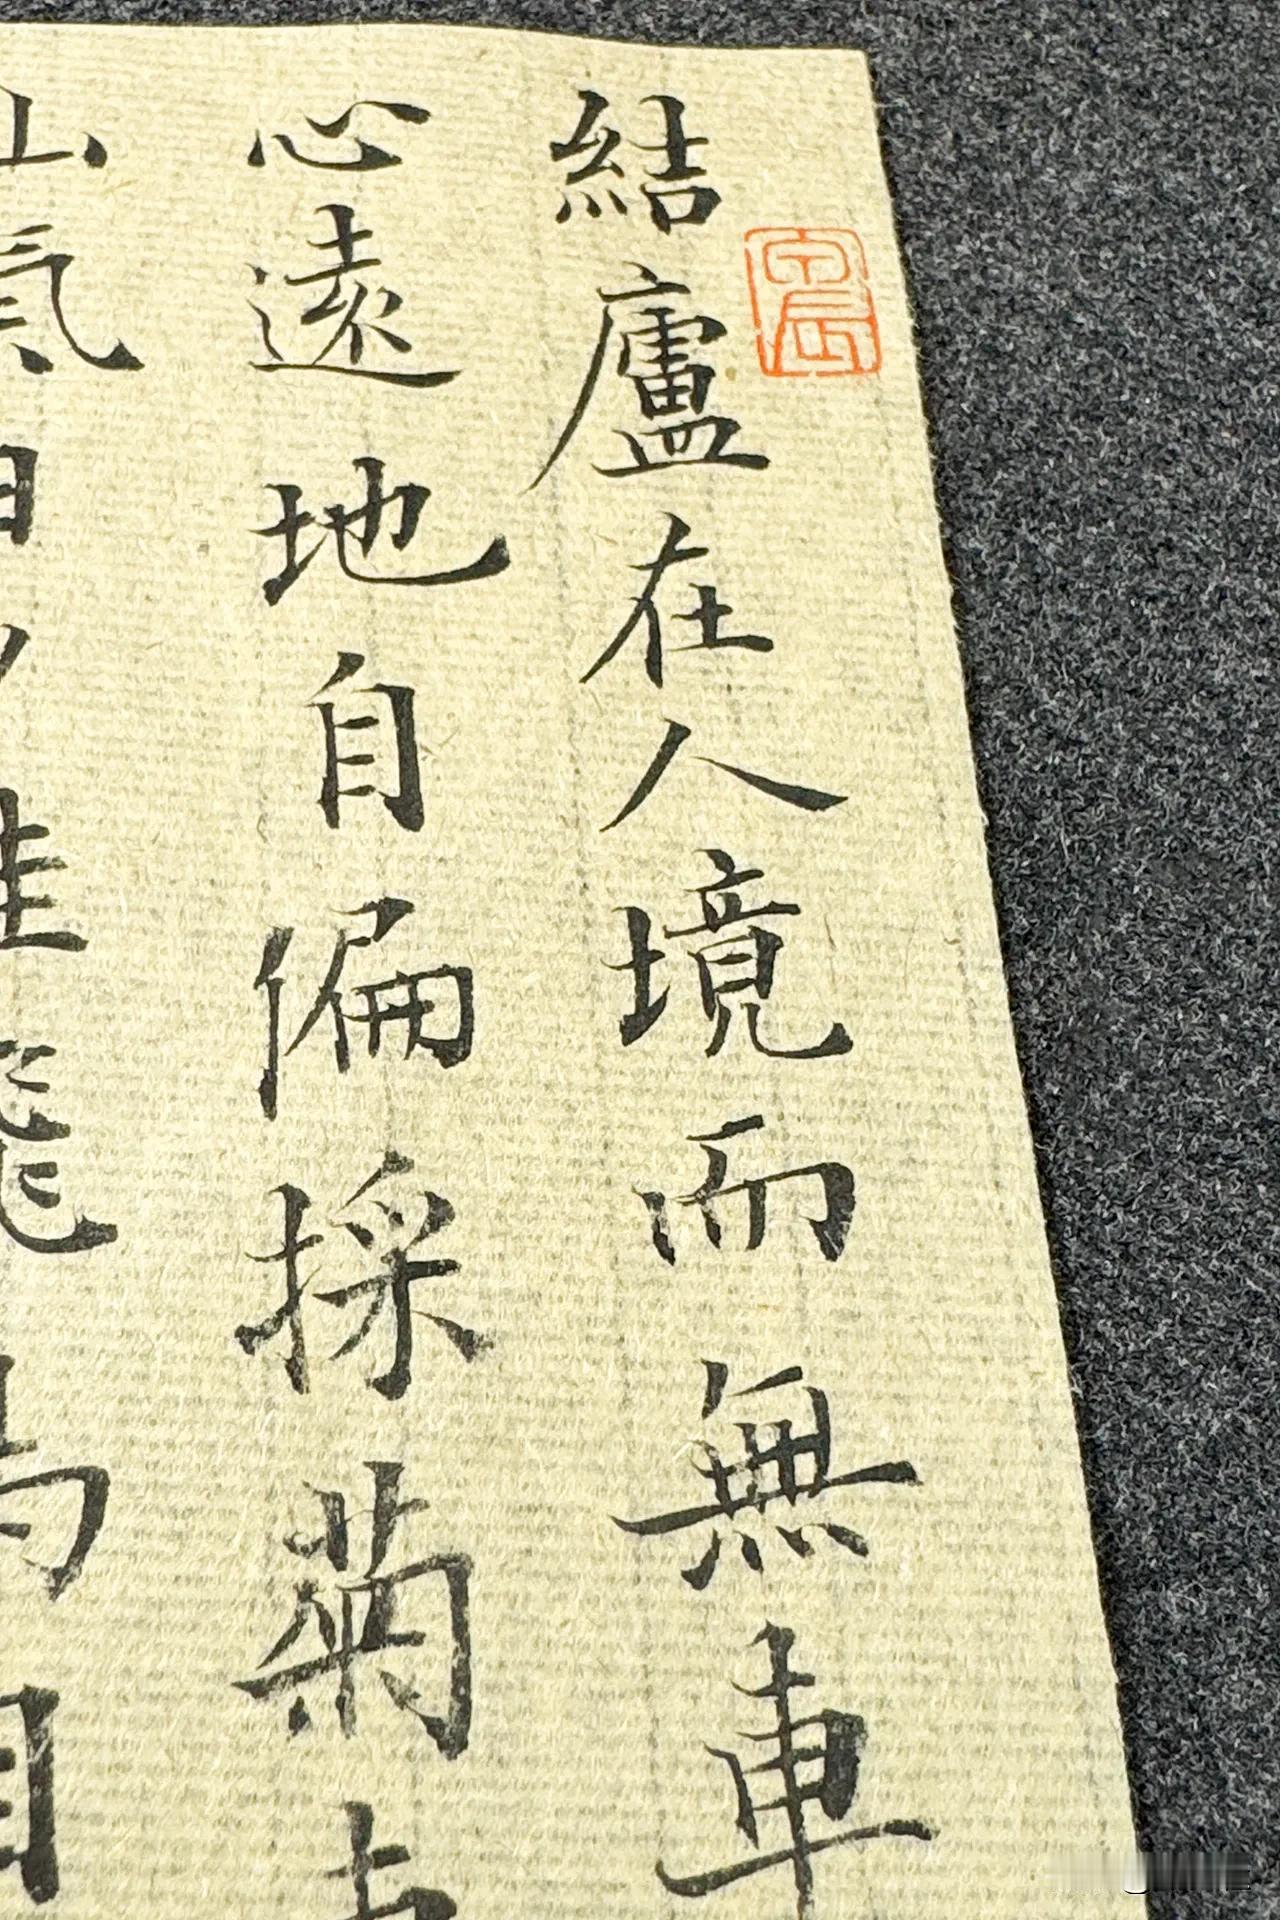 結廬在人境而無車
心遠地自偏採菊
山氣日夕佳飛鳥相